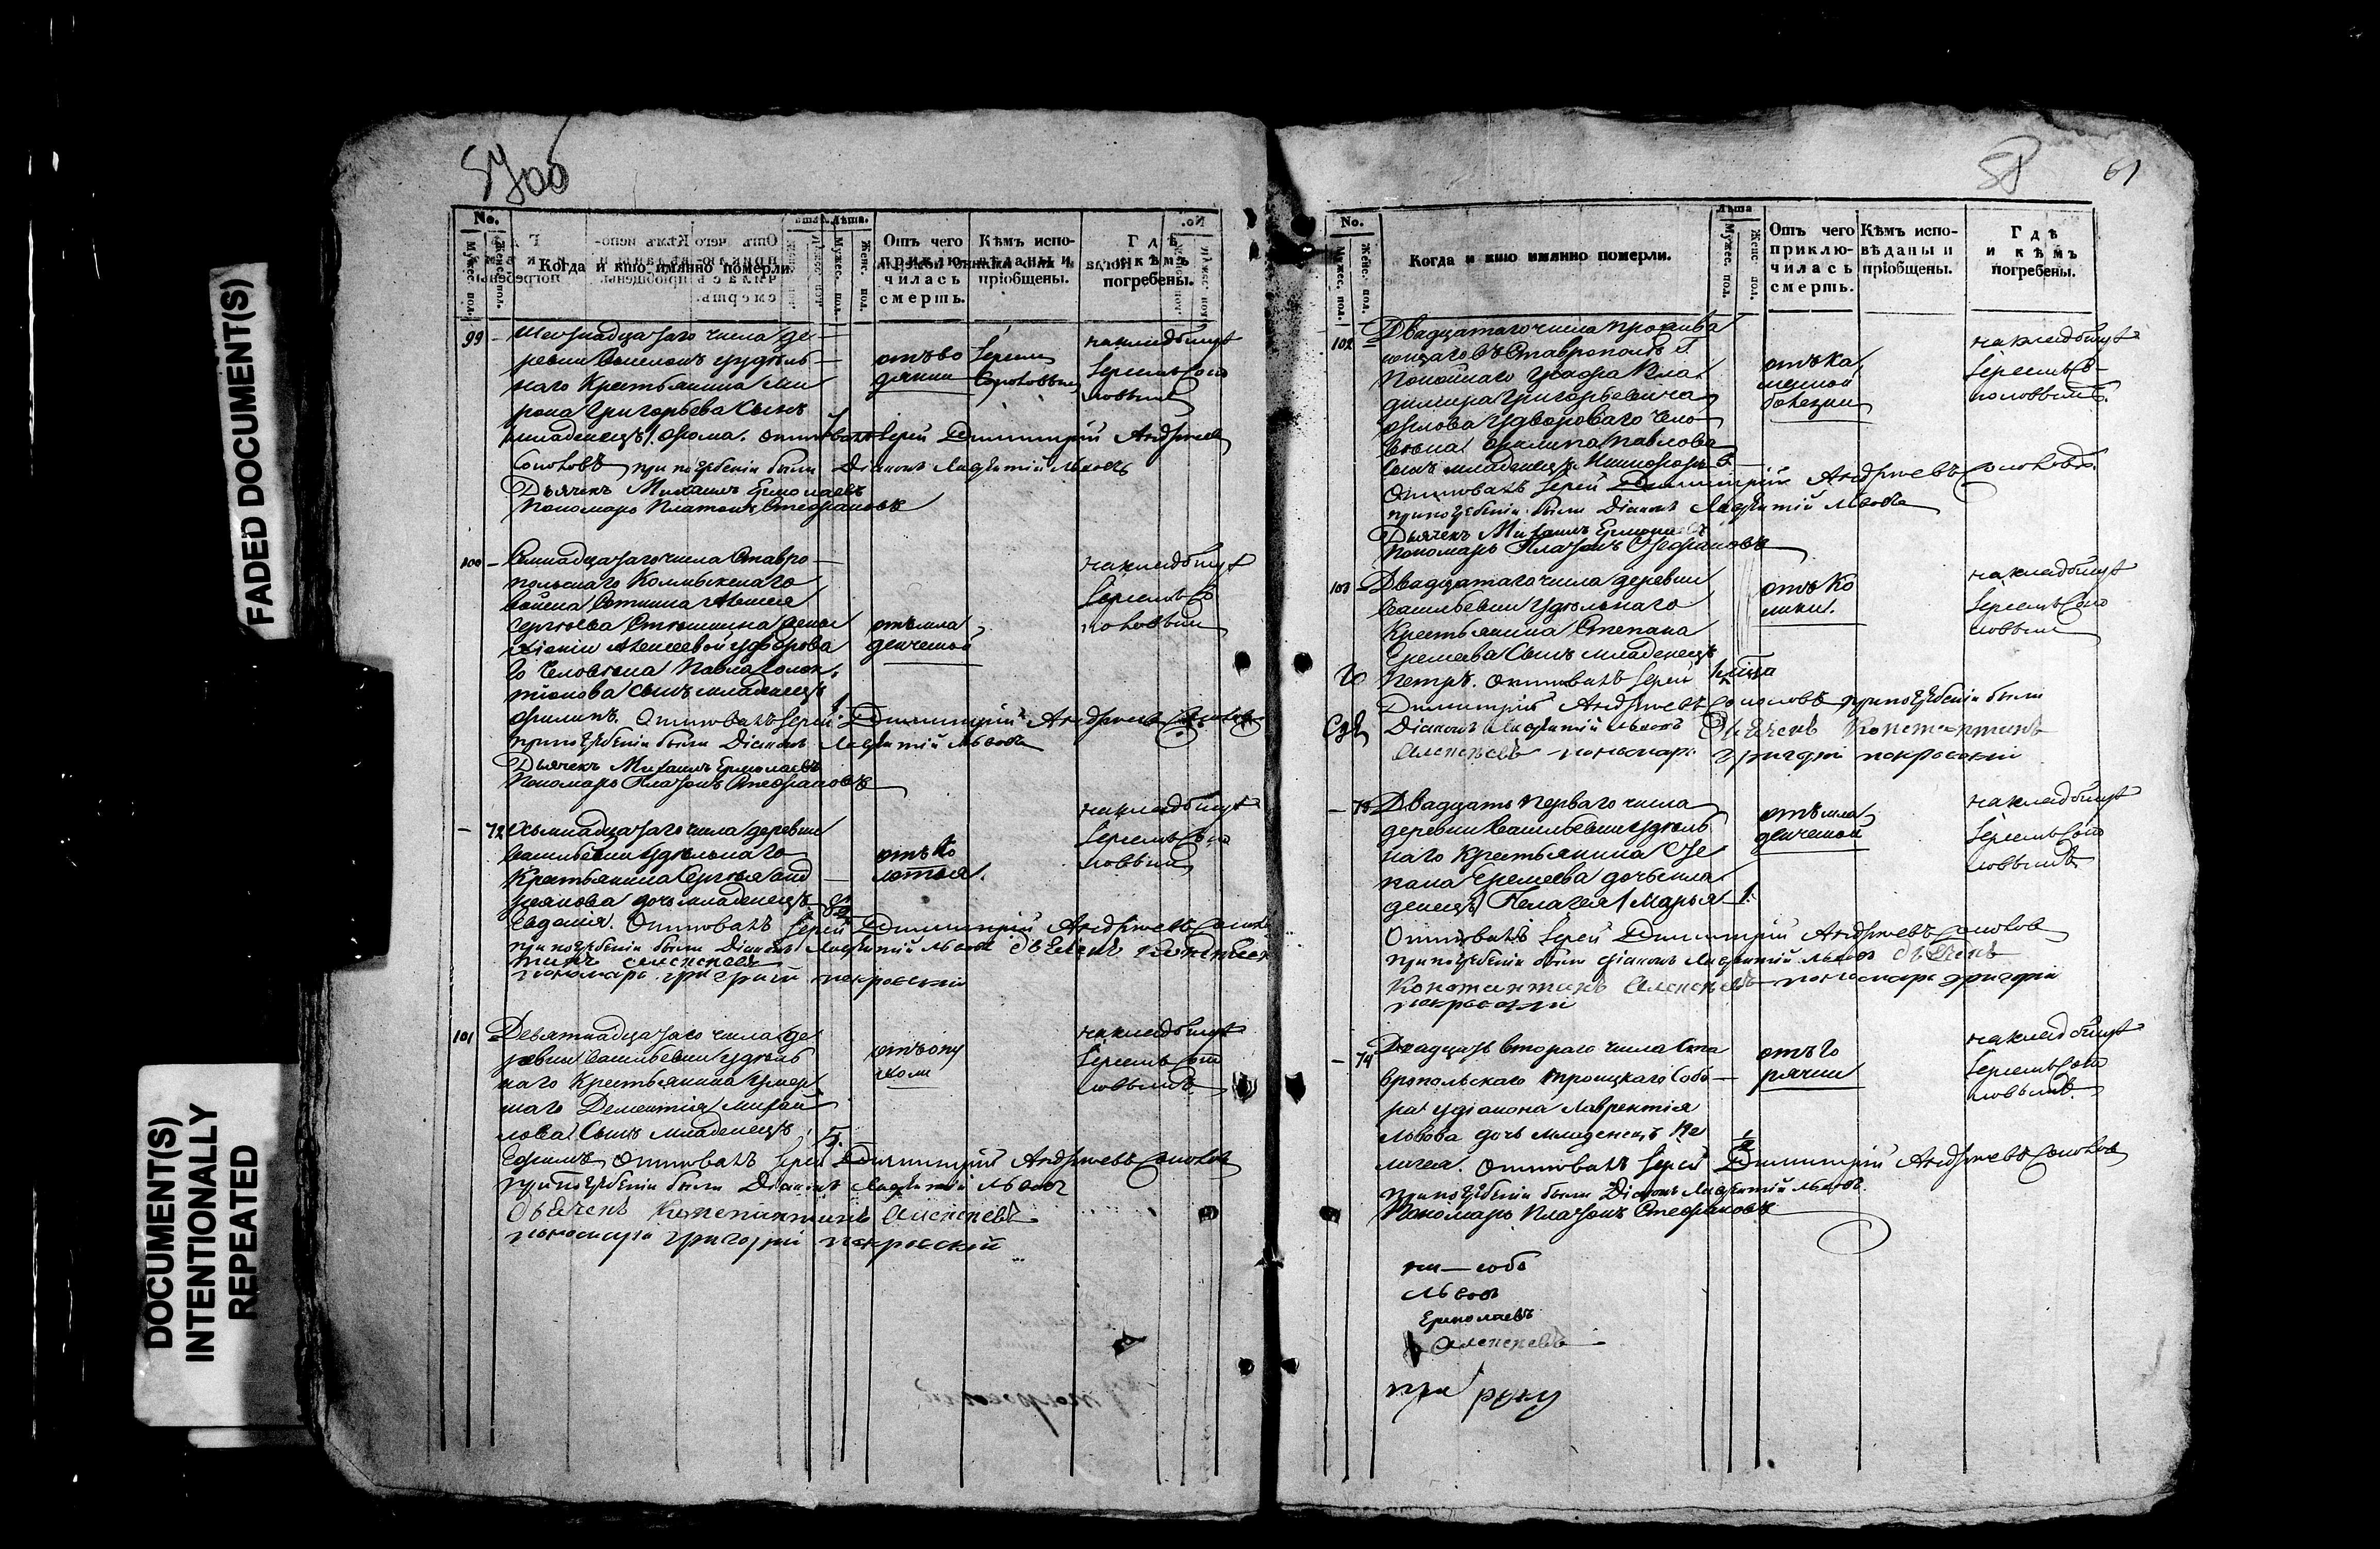 FADED DOCUMENT(S)
DOCUMENT(S)
INTENTIONALLY
REPEATED
57 об
No.
Мужес. пол.
Женс. пол.
Когда и кто имянно померли.
лѣта.
Мужес. пол.
Женс. пол.
Отъ чего
приклю-
чилась
смерть.
Кѣмъ испо-
вѣданы и
пріобщены.
Гдѣ
и кѣмъ
погребены.
99 - Шестнадцатаго числа де-
ревни удѣль-
наго Крестьянина Ми
рона Григорьева Сынъ
младенецъ Фома. Отпѣвалъ Іерей Димитрій Андреевъ
Соколовъ при погребеніи были Діаконъ Лаврентій Львовъ
Дьячекъ Михаилъ Ермолаевъ
Пономарь Платонъ Стефановъ
отъ во
дянки
Іереем
Соколовым
на кладбищѣ
Іереемъ Соко
ловымъ
100 - Семнадцатаго числа Ставро-
польскаго Калмыкскаго
Войска Сотника Алексея
Сергеева жены
Алексеевой дворова
го Человека Павла
сынъ младенецъ
Филипъ. Отпѣвалъ Іерей Димитрій Андреевъ Соколовъ
при погребеніи были Діаконъ Лаврентій Львовъ
Дьячекъ Михаилъ Ермолаевъ
Пономарь Платонъ Стефановъ
отъ мла
денческой
на кладбищѣ
Іереемъ Со
коловым
- 72 Осьмнадцатаго числа деревни
Васильевки удѣльнаго
Крестьянина Сергея Анд
реянова дочь младенецъ
Евдокія. Отпѣвалъ Іерей Димитрій Андреевъ Соколовъ
при погребеніи были Діаконъ Лаврентій Львовъ дьячекъ Констан
тинъ Алексеевъ
пономарь григорій покровскій
отъ ко
лотья.
на кладбищѣ
Іереемъ Соко
ловым
101 Девятнадцатаго числа де
ревни Васильевки удѣль
наго Крестьянина умер
шаго Дементія Михай
лова Сынъ младенецъ 5.
Ефимъ. Отпѣвалъ Іерей Димитрій Андреевъ Соколовъ
при погребеніи были Діаконъ Лаврентій Львовъ
дьячекъ Константинъ Алексеевъ
пономарь григорій покровскій
отъ опу
холи
на кладбищѣ
Іереемъ Соко
ловымъ
58
61
No.
Мужес. пол.
Женс. пол.
Когда и кто имянно померли.
лѣта
Мужес. пол.
Женс. пол.
Отъ чего
приклю-
чилась
смерть.
Кѣмъ испо-
вѣданы и
пріобщены.
Гдѣ
и кѣмъ
погребены.
102 - Двадцатаго числа прожива
ющаго въ Ставрополѣ Г.
Покойнаго Графа Вла
димира Григорьевича
Орлова двороваго чело
века Филипа Павлова
сынъ младенецъ Никифоръ
Отпѣвалъ Іерей Димитрій Андреевъ Соколовъ.
при погребеніи были Діаконъ Лаврентій Львовъ
Дьячекъ Михаилъ Ермолаевъ
Пономарь Платонъ Стефановъ
отъ ка
менной
болезни
на кладбищѣ
Іереемъ Со
коловымъ.
103 - Двадцатаго числа деревни
Васильевки удѣльнаго
Крестьянина Степана
Еремеева Сынъ младенецъ
Петръ. Отпѣвалъ Іерей
Димитрій Андреевъ Соколовъ при погребеніи были
Діаконъ Лаврентій Львовъ Дьячекъ Константинъ
Алексеевъ пономарь григорій покровскій
отъ ко
лики.
на кладбищѣ
Іереемъ Соко
ловым
- 73 Двадцать перваго числа
деревни Васильевки удѣль
наго Крестьянина Сте
пана Еремеева дочь мла
денецъ Пелагея / Марья 1.
Отпѣвалъ Іерей Димитрій Андреевъ Соколовъ
при погребеніи были Діаконъ Лаврентій Львовъ дьячекъ
Константинъ Алексеевъ пономарь григорій
покровскій
отъ мла
денческой
на кладбищѣ
Іереемъ Соко
ловымъ
- 74 Двадцать втораго числа Ста
вропольскаго Троицкаго Собо-
ра діакона Лаврентія
Львова дочь младенецъ Пе
лагея. Отпѣвалъ Іерей Димитрій Андреевъ Соколовъ
при погребеніи были Діаконъ Лаврентій Львовъ.
Пономарь Платонъ Стефановъ
отъ го
рячки
на кладбищѣ
Іереемъ Соко
ловымъ.
Львовъ
Ермолаевъ
Алексеевъ
при руку